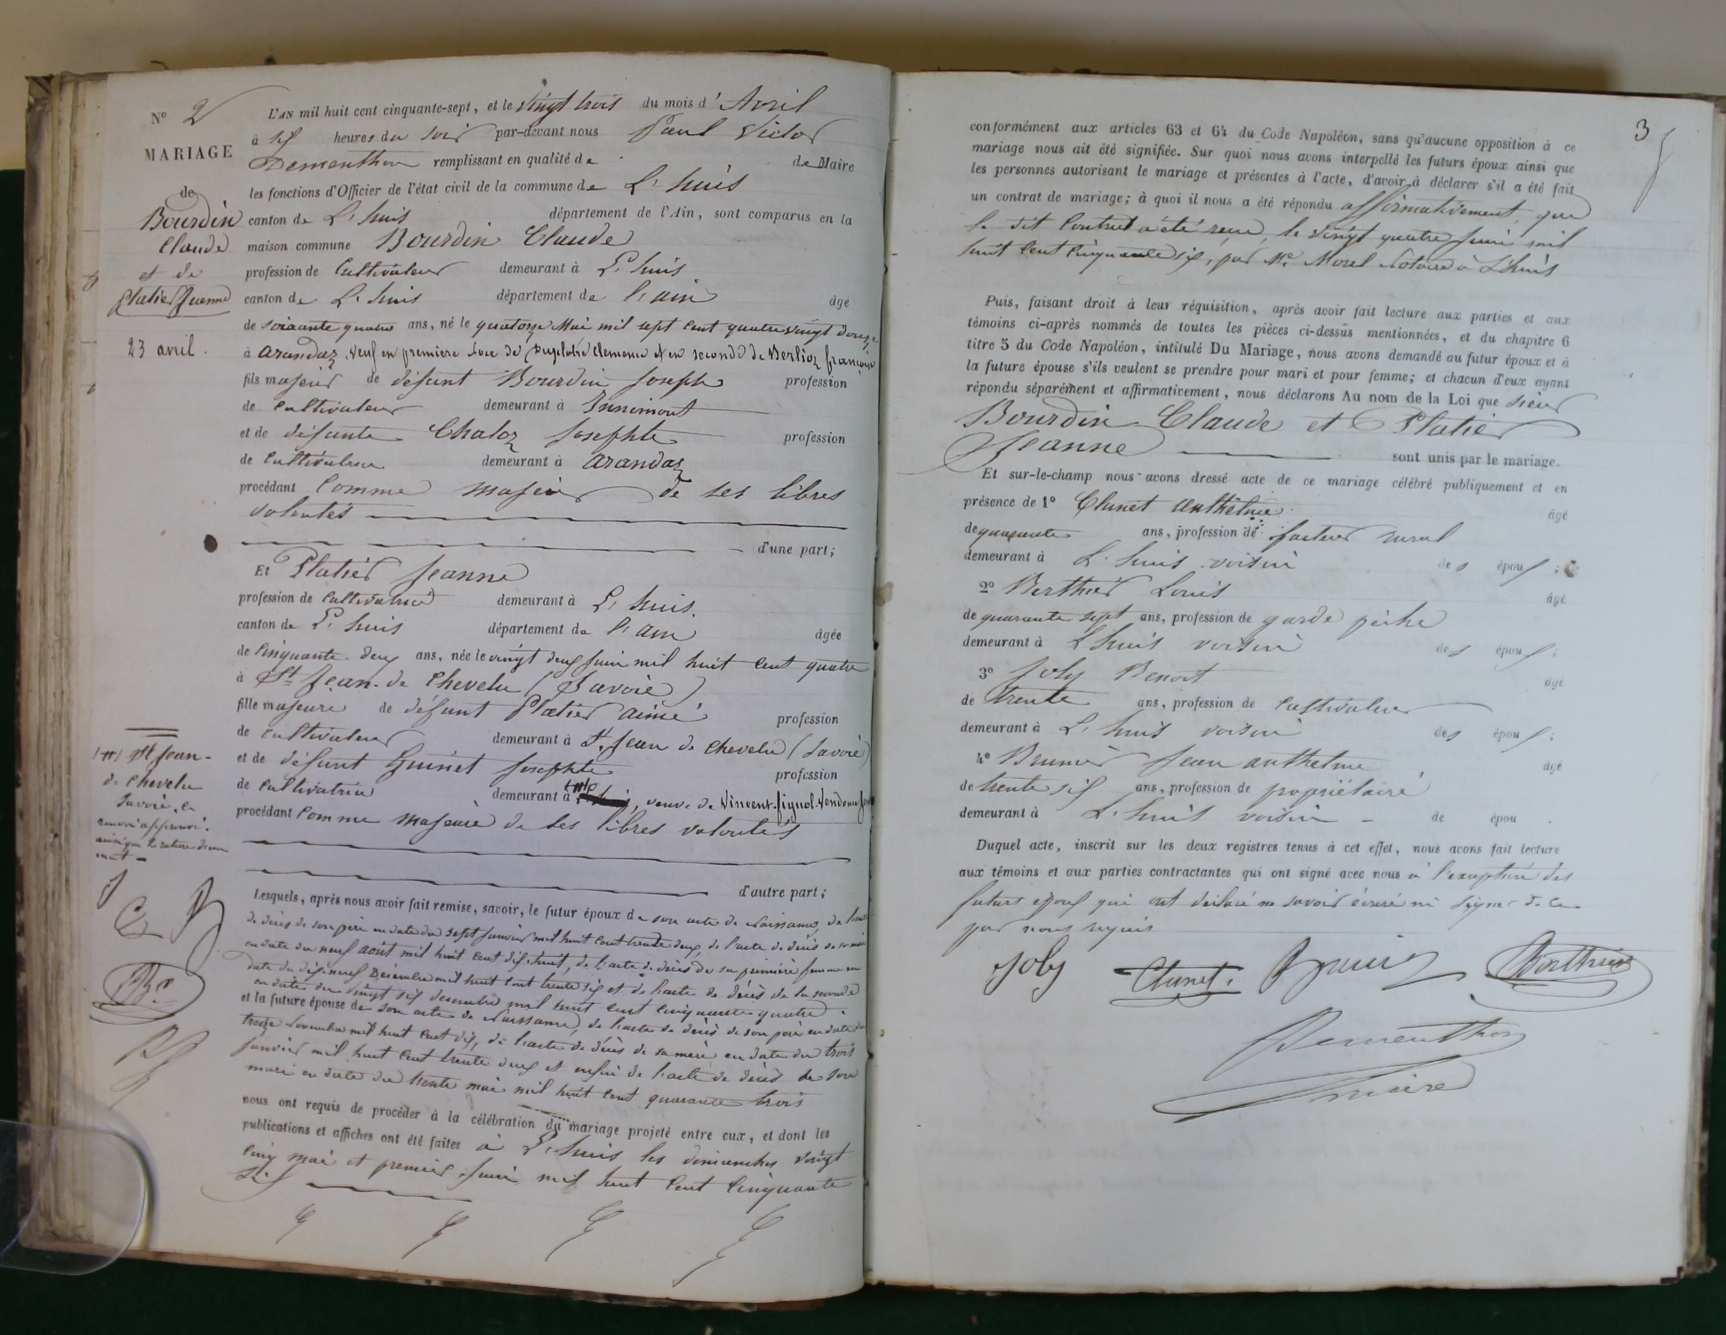 N° 2
MARIAGE
de
Bourdin
Claude
et de
Platier Jeanne
23 avril.
L'AN mil huit cent cinquante-sept, et le vingt trois du mois d'Avril
à six heures du soir par-devant nous Paul Victor
Dementhon remplissant en qualité de de Maire
les fonctions d'Officier de l'état civil de la commune de L'huis
canton de L'huis département de l'Ain, sont comparus en la
maison commune Bourdin Claude
profession de Cultivateur demeurant à L'huis
canton de L'huis département de l'ain âgé
de soixante quatre ans, né le quatorze Mai mil sept cent quatre vingt douze
à arandaz, veuf en première noce de clémence et en seconde de Berlioz françoise
fils majeur de défunt Bourdin Joseph profession
de Cultivateur demeurant à Innimont
et de défunte Chaloz Josephte profession
de Cultivateur demeurant à arandaz
procédant Comme majeur de ses libres
volontés
d'une part;
Et Platier Jeanne
profession de Cultivatrice demeurant à L'huis.
canton de L'huis département de l'ain âgée
de Cinquante-deux ans, née le vingt deux Juin mil huit cent quatre
à St Jean-de Chevelu (Savoie)
fille majeure de défunt Platier aimé profession
de Cultivateur demeurant à St Jean de Chevelu (Savoie)
et de défunt Guinet Josephte profession
de Cultivatrice demeurant à , veuve de Vincent-
procédant Comme majeure de ses libres volontés
St Jean-
de Chevelu
Savoie, le
renvoi approuvé.
ainsi que la rature d'un
mot
d'autre part;
Lesquels, après nous avoir fait remise, savoir, le futur époux de son acte de Naissance, de l'acte
de décès de son père en date du sept Janvier mil huit cent trente deux, de l'acte de décès de sa mère
en date du neuf août mil huit cent dix-huit, de l'acte de décès de sa première femme en
date du dix-neuf Décembre mil huit cent trente six et de l'acte de décès de la seconde
en date du vingt six decembre mil huit cent cinquante quatre
et la future épouse de son acte de Naissance, de l'acte de décès de son père en date du
treize Novembre mil huit cent dix, de l'acte de décès de sa mère en date du trois
Janvier mil huit cent trente deux et enfin de l'acte de décès de son
mari en date du trente mai mil huit cent quarante trois
nous ont requis de procéder à la célébration du mariage projeté entre eux, et dont les
publications et affiches ont été faites à L'huis les dimanches vingt
cinq mai et premier Juin mil huit cent cinquante
six
3
conformément aux articles 63 et 64 du Code Napoléon, sans qu'aucune opposition à ce
mariage nous ait été signifiée. Sur quoi nous avons interpellé les futurs époux ainsi que
les personnes autorisant le mariage et présentes à l'acte, d'avoir à déclarer s'il a été fait
un contrat de mariage; à quoi il nous a été répondu affirmativement, que
le dit Contrat a été reçu, le vingt quatre Juin mil
huit Cent Cinquante six, par Me. Morel Notaire à L'huis
Puis, faisant droit à leur réquisition, après avoir fait lecture aux parties et aux
témoins ci-après nommés de toutes les pièces ci-dessus mentionnées, et du chapitre 6
titre 5 du Code Napoléon, intitulé Du Mariage, nous avons demandé au futur époux et à
la future épouse s'ils veulent se prendre pour mari et pour femme; et chacun d'eux ayant
répondu séparément et affirmativement, nous déclarons Au nom de la Loi que sieur
Bourdin Claude et Platier
Jeanne sont unis par le mariage.
Et sur-le-champ nous avons dressé acte de ce mariage célébré publiquement et en
présence de 1° Clunet anthelme âgé
de quarante ans, profession de facteur rural
demeurant à L'huis voisin des époux;
2° Berthier Louis âgé
de quarante sept ans, profession de garde pêche
demeurant à L'huis voisin des époux;
3° Joly Benoit âgé
de trente ans, profession de Cultivateur
demeurant à L'huis voisin des époux;
4° Brunier Jean anthelme âgé
de trente six ans, profession de propriétaire
demeurant à L'huis voisin de épou
Duquel acte, inscrit sur les deux registres tenus à cet effet, nous avons fait lecture
aux témoins et aux parties contractantes qui ont signé avec nous à l'exception des
futurs époux qui ont déclaré ne savoir écrire ni signer de ce
par nous requis
Joly Clunet. Brunier Berthier
Dementhon
maire